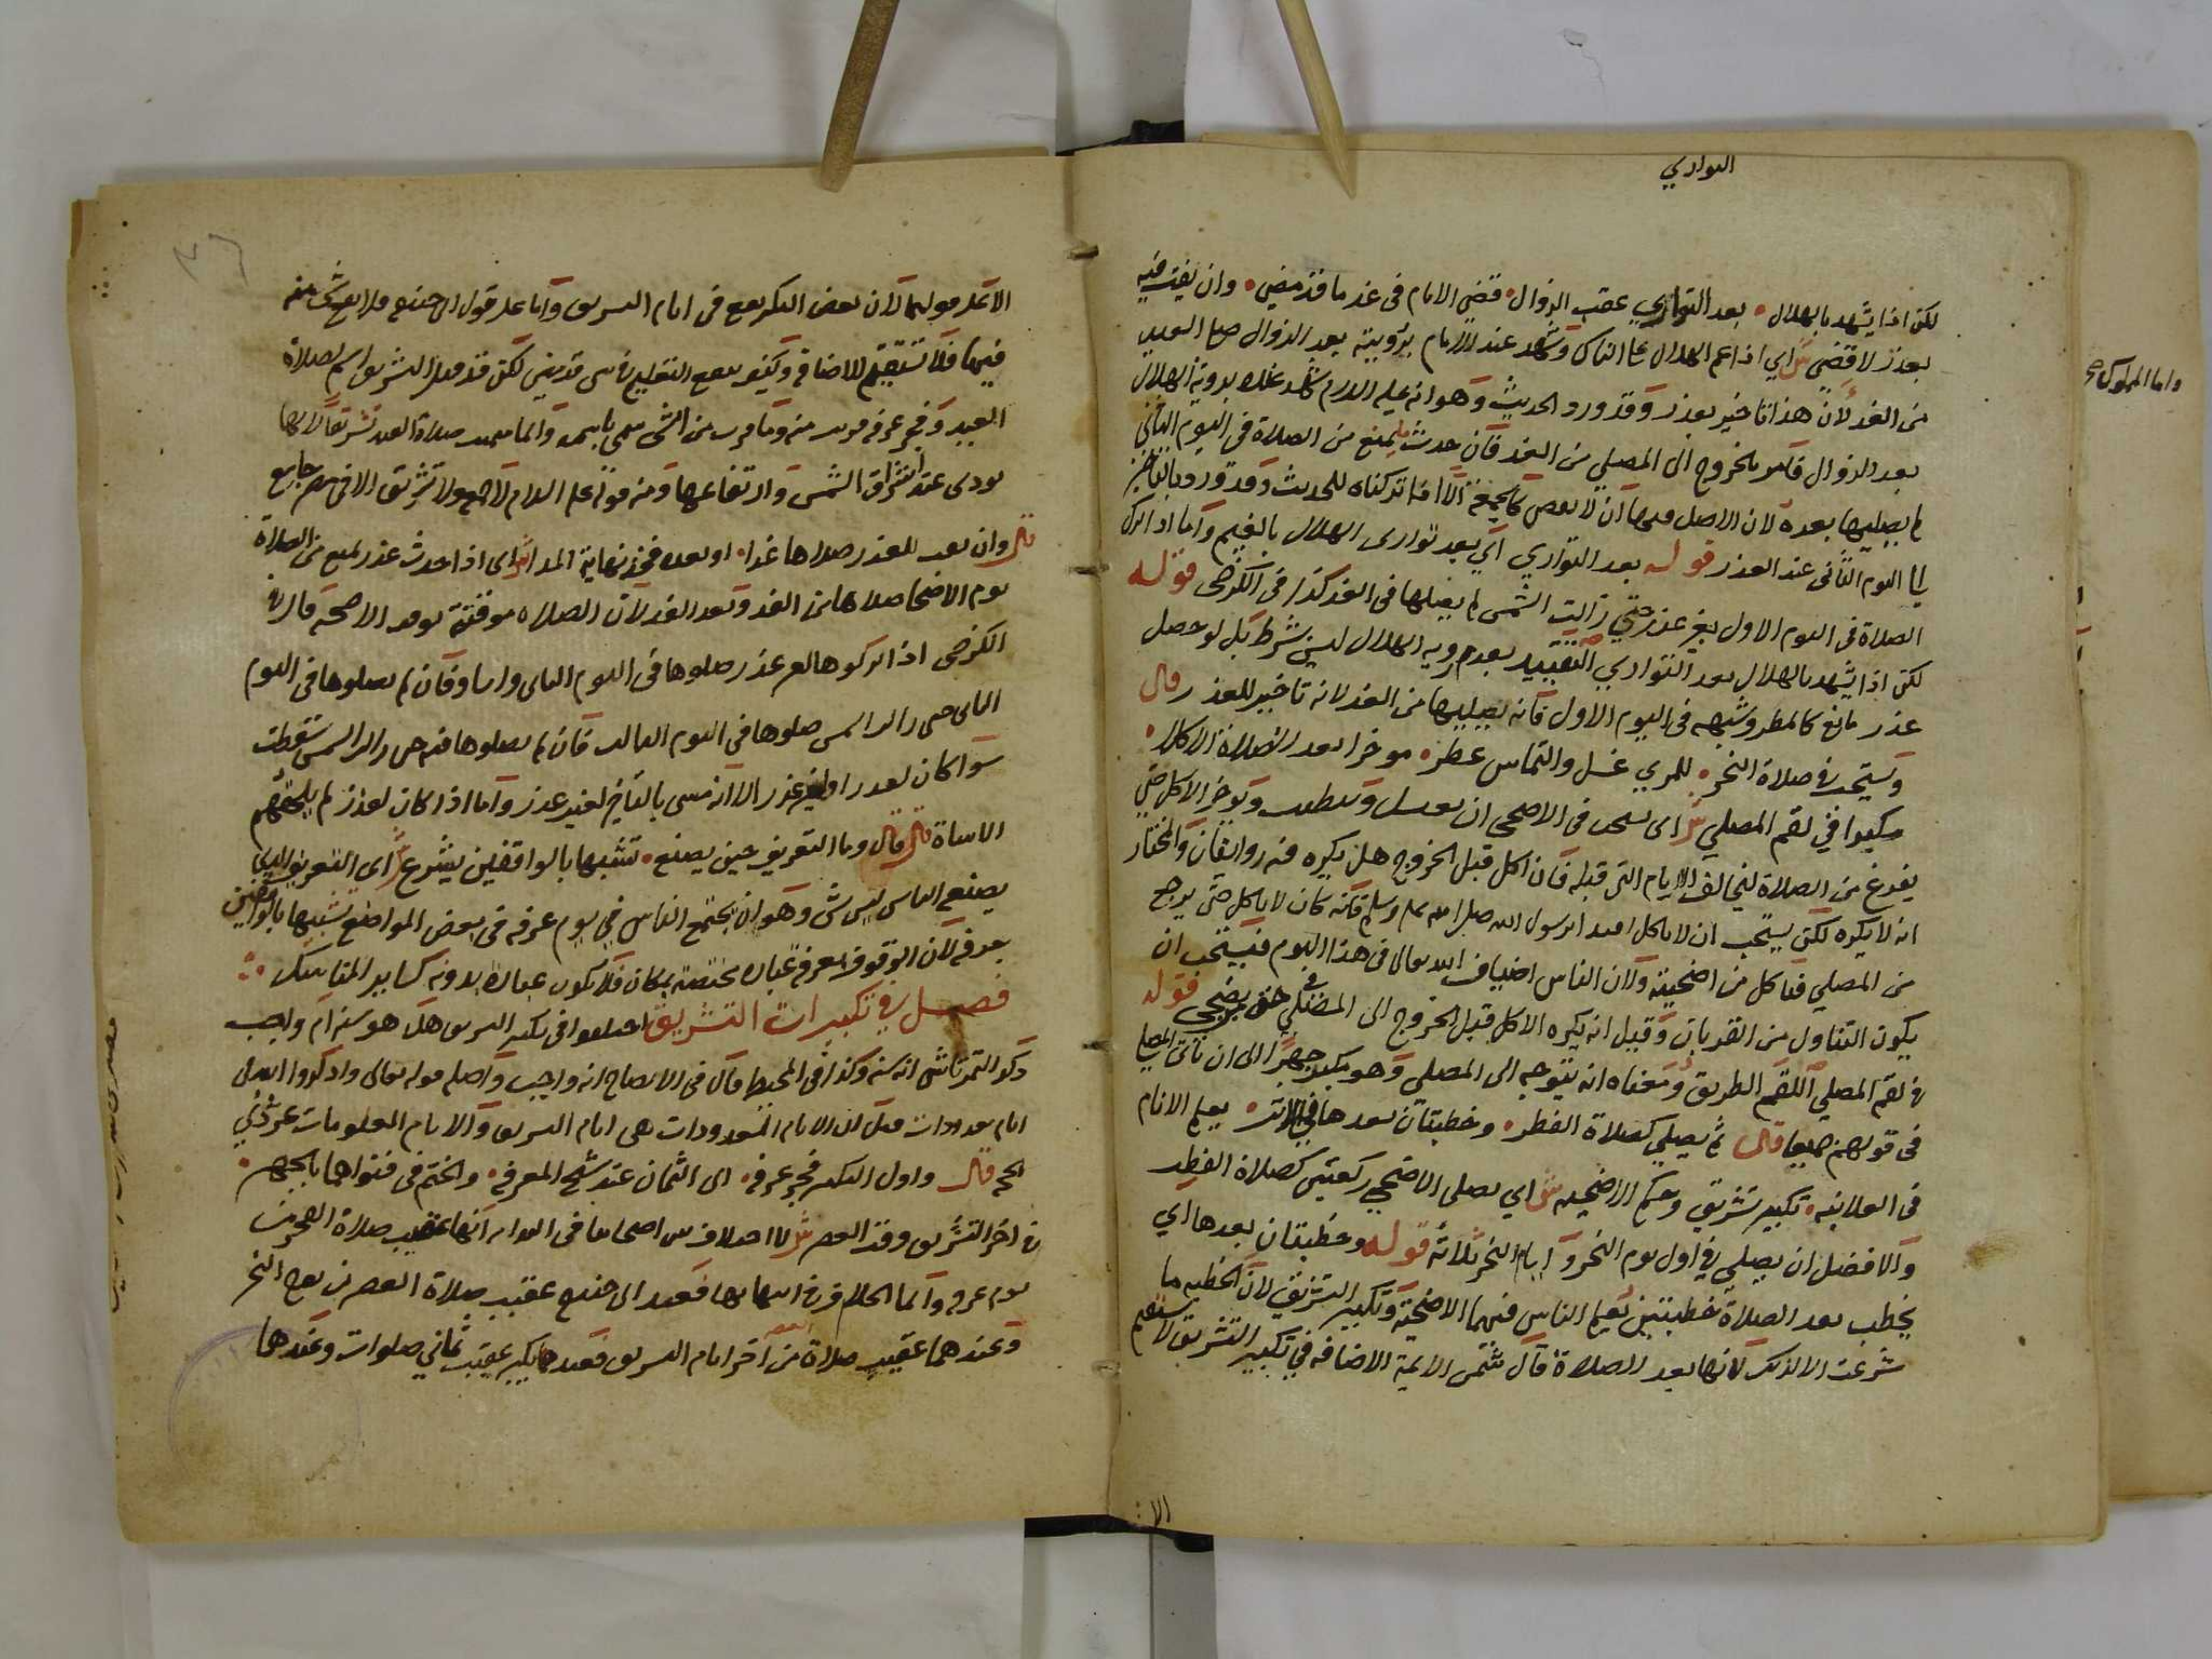 التواري
لكن اذا يشهد بالهلال • بعد التواري عقب الزوال • قضى الامام فى غد ما قد مضى • وان يفت فيه
بعذر لا قضي ش اي اذا غم الهلال على الناس وشهد عند الامام برؤيته بعد الزوال صلى العيد
من الغد لان هذا تاخير بعذر وقد ورد الحديث وهو انه عليه السلام شهد عنده برؤية الهلال
بعد الزوال فامر بالخروج الى المصلي من الغد فان حدث ما يمنع من الصلاة فى اليوم الثاني
لم يصليها بعده لان الاصل فيها ان لا تقضى كالجمعة الا انا تركناه للحديث وقد ورد بالتاخير
الى اليوم الثاني عند العذر قوله بعد التواري اي بعد توارى الهلال بالغيم واما اذا ترك
الصلاة فى اليوم الاول بغير عذر حتي زالت الشمس لم يصلها فى الغد كذا فى الكرخى قوله
لكن اذا يشهد بالهلال بعد التواري التقييد بعدم رويه الهلال ليس بشرط بل لو حصل
عذر مانع كالمطر وشبهه فى اليوم الاول فانه يصليها من الغد لانه تاخير للعذر قال
ويستحب فى صلاة النحر • للمرء غسل والتماس عطر • موخرا بعد الصلاة الاكلا •
مكبرا في لقم المصلي ش اى يستحب فى الاضحى ان يغتسل ويتطيب ويوخر الاكل حتى
يفرغ من الصلاة ليخالف الايام التى قبله فان اكل قبل الخروج هل يكره فيه روايتان والمختار
انه لا يكره لكن يستحب ان لا ياكل اقتداء برسول الله صلى الله عليه وسلم فانه كان لا ياكل حتى يرجع
من المصلي فياكل من اضحيته ولان الناس اضياف الله تعالى فى هذا اليوم فيستحب ان
يكون التناول من القربان وقيل انه يكره الاكل قبل الخروج الى المصلي حتى يضحي قوله
فى لقم المصلي اللقم الطريق ومعناه انه يتوجه الى المصلي وهو يكبر جهرًا الى ان ياتى المصلى
فى قولهم جميعا قال ثم يصلي كصلاة الفطر • وخطبتان بعدها فى الاثر • يعلم الانام
فى العلانيه • تكبير تشريق وحكم الاضحيه ش اي يصلى الاضحى ركعتين كصلاة الفطر
والافضل ان يصلي فى اول يوم النحر وايام النحر ثلاثة قوله وخطبتان بعدها اي
يخطب بعد الصلاة خطبتين يعلم الناس فيهما الاضحية وتكبير التشريق لان الخطبه ما
شرعت الا لذلك لانها بعد الصلاة قال شمس الايمة الاضافه في تكبير التشريق لا تستقيم
الا:
واما المملوك
الا على قولهما لان بعض التكبير يقع فى ايام التشريق واما على قول ابى حنيفة فلا يقع شى منه
فيها فلا تستقيم الاضافه وكيف يقع التقديم لكن قد قيل التشريق اسم لصلاة
العيد وفجر عرفه قريب منه وما قرب من الشى سمى باسمه وانما سميت صلاة العيد تشريقا لانها
تودى عند اشراق الشمس وارتفاعها ومنه قوله عليه السلام لا جمعه ولا تشريق الا فى مصر جامع
قال وان تفت للعذر صلاها غدا • او بعده فخذ نهاية المدا ش اى اذا حدث عذر يمنع من الصلاة
يوم الاضحا صلاها من الغد وبعد الغد لان الصلاه موقتة بوقت الاضحيه قال فى
الكرخى اذا تركوها لغير عذر صلوها فى اليوم الثانى واساوا فان لم يصلوها فى اليوم
الثانى حتى زالت الشمس صلوها فى اليوم الثالث فان لم يصلوها فيه حتى زالت الشمس سقطت
سوا كان لعذر او لغير عذر الا انه مسى بالتاخير لغير عذر واما اذا كان لعذر لم يلحقهم
الاساة قال وما التعريف حين يصنع • تشبها بالواقفين يشرع ش اى التعريف الذي
يصنعه الناس ليس بشى وهو ان يجتمع الناس فى يوم عرفه فى بعض المواضع تشبيها بالواقفين
بعرفه لان الوقوف بعرفة عبادة مختصة بمكان فلا يكون عبادة بدونه كساير المناسك
فصل في تكبيرات التشريق اختلفوا فى تكبير التشريق هل هو سنه ام واجب
ذكر التمرتاشى انه سنه وكذا فى المحيط قال فى الايضاح انه واجب واصله قوله تعالى واذكروا الله فى
ايام معدودات قيل ان الايام المعدودات هى ايام التشريق والايام المعلومات عشر ذي
الحجه قال واول التكبير فجر عرفه • الى الثمان عند شيخ المعرفه • والختم فى فتواهما بالجهر •
فى اخر التشريق وقت العصر ش لا اختلاف بين اصحابنا فى البدايه انها عقيب صلاة الفجر من
يوم عرفه وانما الخلاف فى انتهايها فعند ابى حنيفه عقيب صلاة العصر من يوم النحر
وعندهما عقيب صلاة العصر من آخر ايام التشريق فعنده يكبر عقيب ثماني صلوات وعندهما